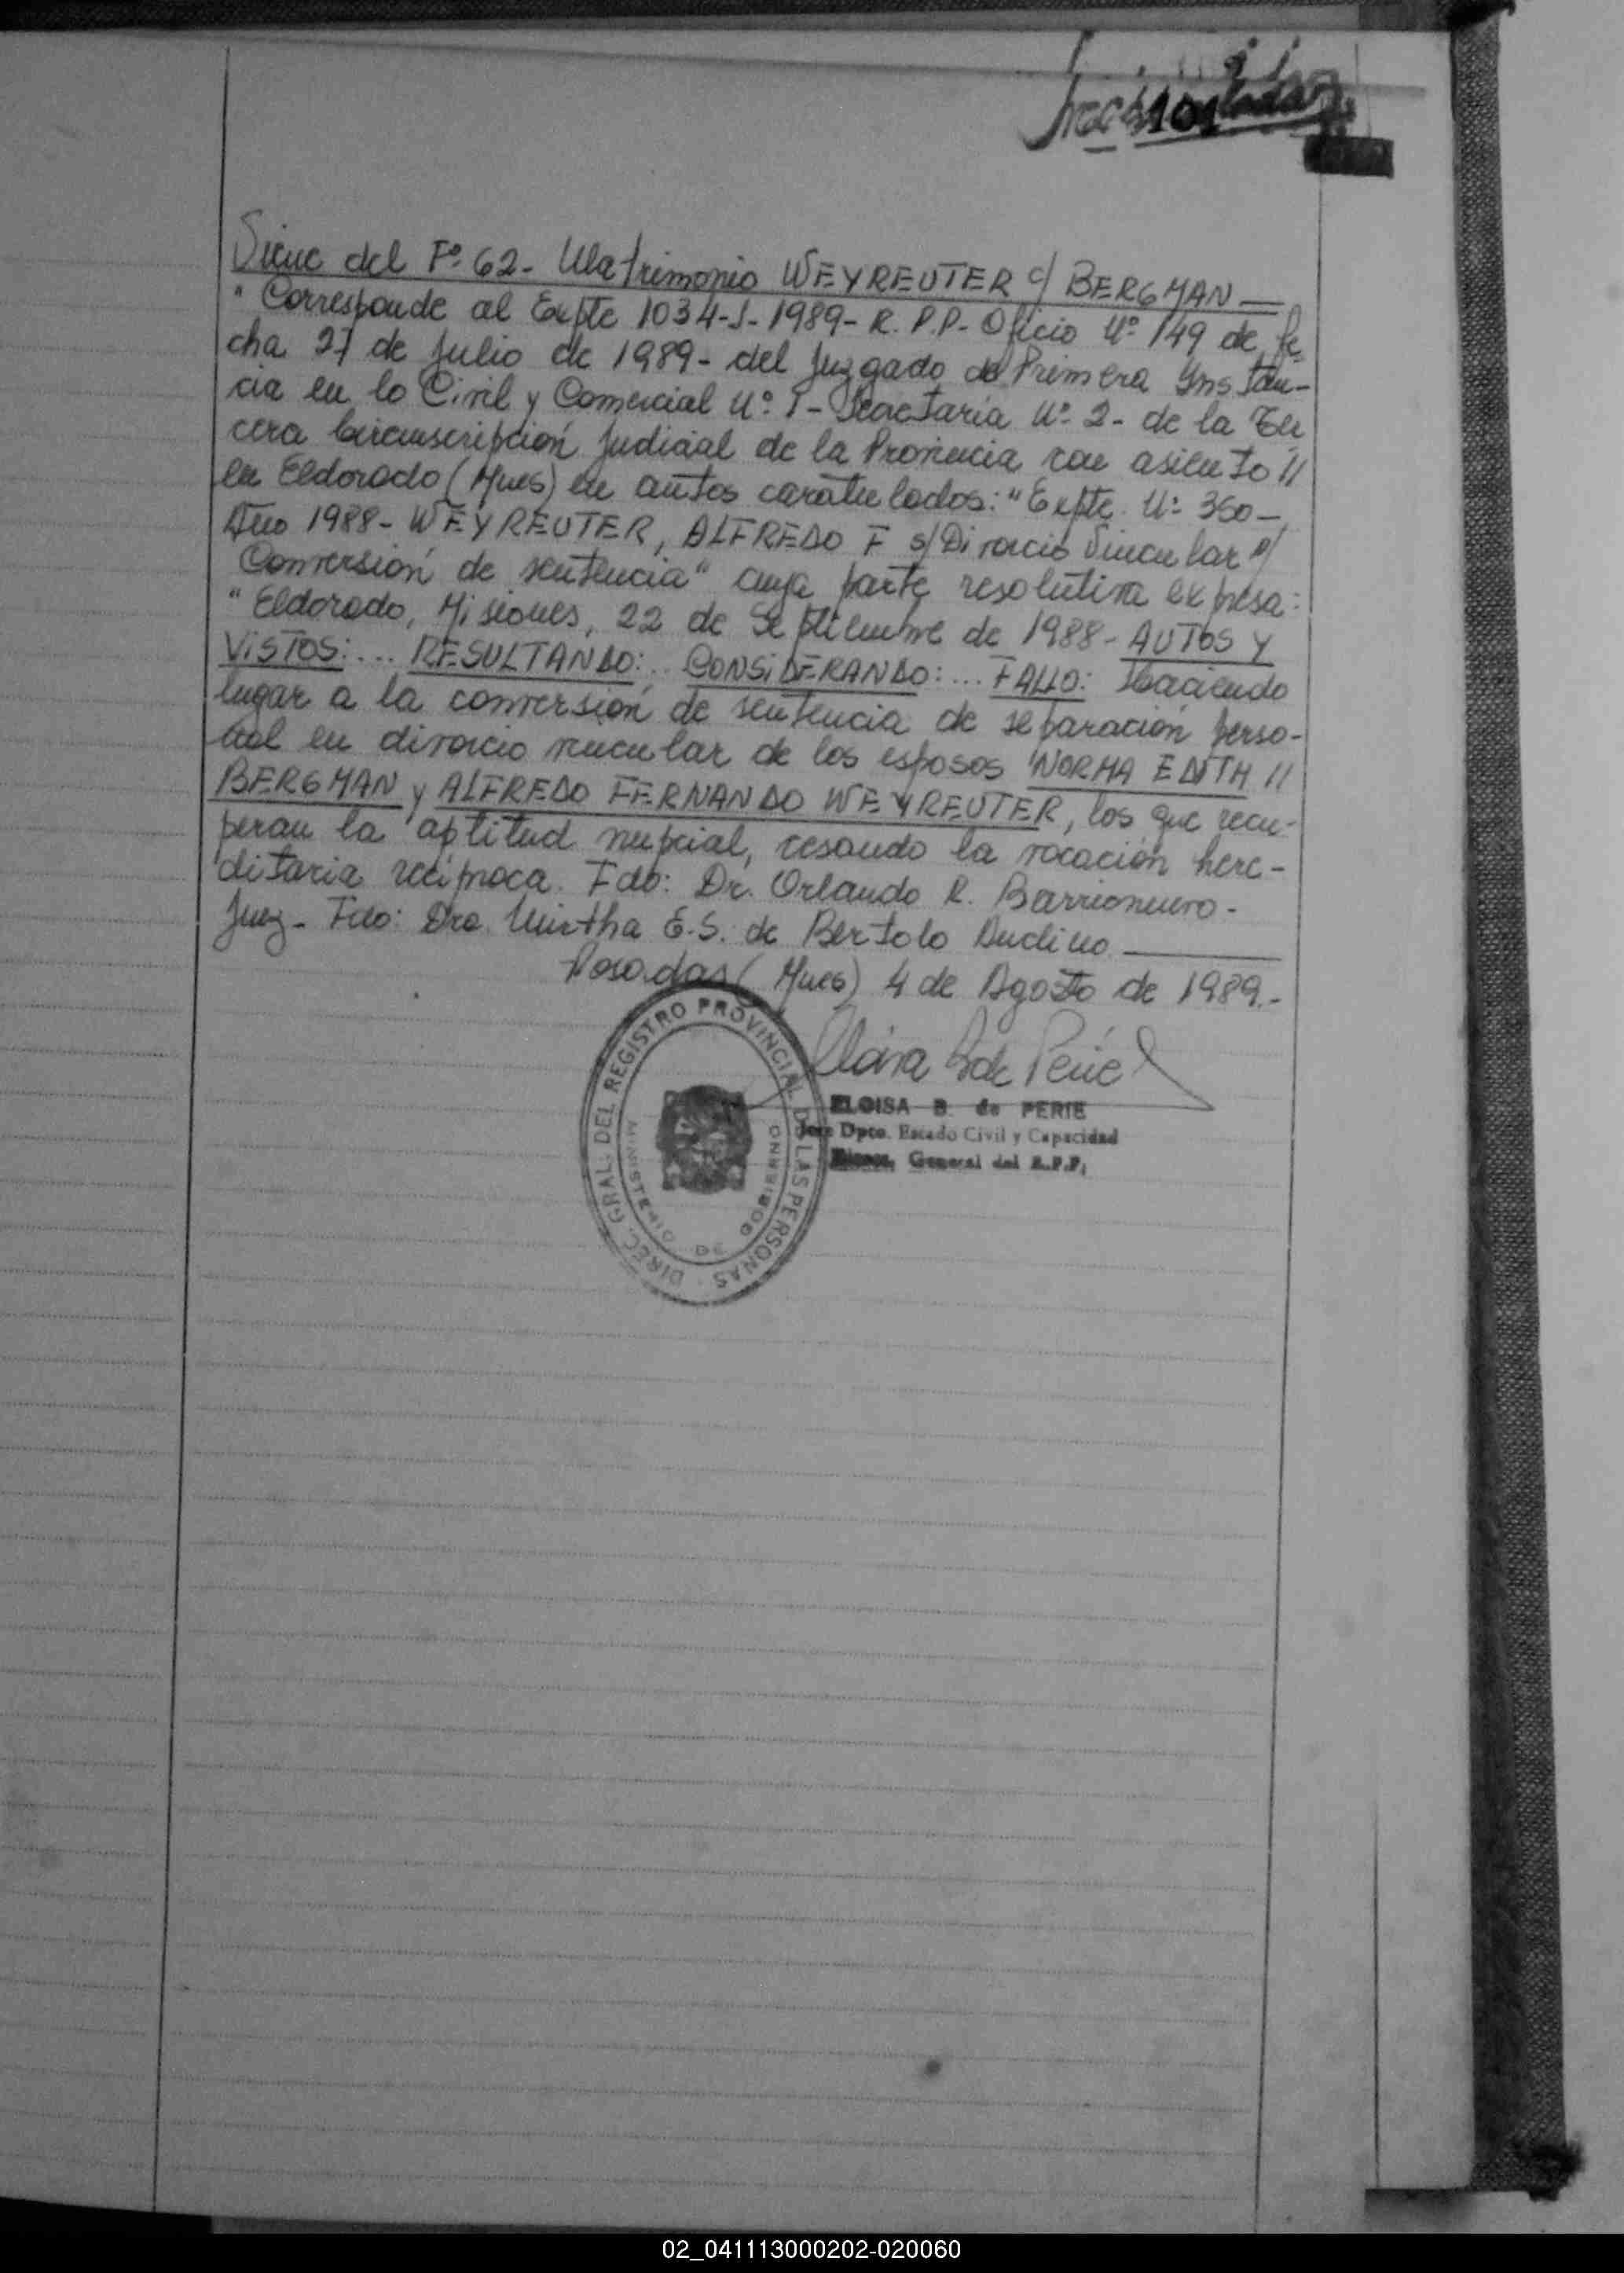 101
Sigue del Fº 62- Matrimonio WEYREUTER c/ BERGMAN —
" Corresponde al Expte 1034-J-1989- R.P.P- Oficio Nº 149 de fe-
cha 27 de Julio de 1989- del Juzgado de Primera Instan-
cia en lo Civil y Comercial Nº 1- Secretaría Nº 2- de la Ter
cera Circunscripción Judicial de la Provincia con asiento //
en Eldorado (Mnes) en autos caratulados: "Expte. Nº 360-
Año 1988- WEYREUTER, ALFREDO F s/Divorcio Vincular p/
Conversión de sentencia" cuya parte resolutiva expresa:
"Eldorado, Misiones, 22 de Septiembre de 1988- AUTOS Y
VISTOS:... RESULTANDO:.. CONSIDERANDO:... FALLO: Haciendo
lugar a la conversión de sentencia de separación perso-
nal en divorcio vincular de los esposos NORMA EDITH //
BERGMAN y ALFREDO FERNANDO WEYREUTER, los que recu-
peran la aptitud nupcial, cesando la vocación here-
ditaria recíproca. Fdo: Dr. Orlando R. Barrionuevo-
Juez- Fdo: Dra. Mirtha E.S. de Bertolo Andino. —
Posadas (Mnes) 4 de Agosto de 1989.-
ELOISA B. de PERIE
Jefe Dpto. Estado Civil y Capacidad
General del R.P.P.
DIREC. GRAL. DEL REGISTRO PROVINCIAL DE LAS PERSONAS
MINISTERIO DE GOBIERNO
02_041113000202-020060